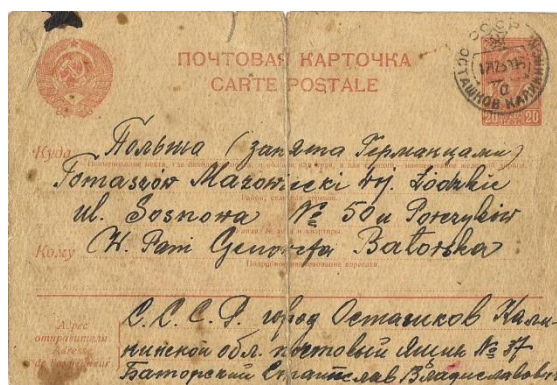 ПОЧТОВАЯ КАРТОЧКА
CARTE POSTALE
СССР
ОСТАШКОВ КАЛИНИНСК
20 20
Куда Польша (занята Германцами)
Tomaszów Mazowiecki wj. Łódzkie
ul. Sosnowa № 50 u
Кому W. Pani Genowefa Batorska
Адрес отправителя
С.С.С.Р. город Осташков Кали-
нинской обл. почтовый ящик № 37
Баторский Станислав Владиславович